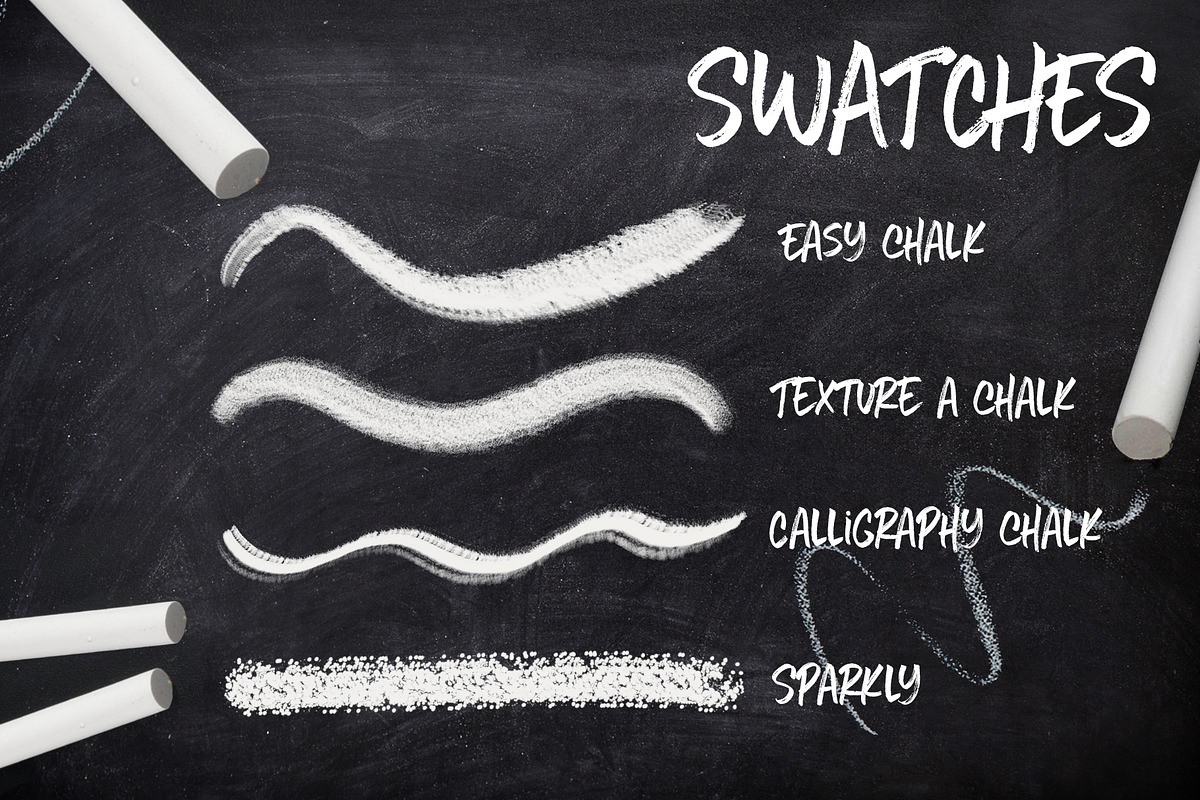 SWATCHES
EASY CHALK
TEXTURE A CHALK
CALLiGRAPHY CHALK
SPARKLY